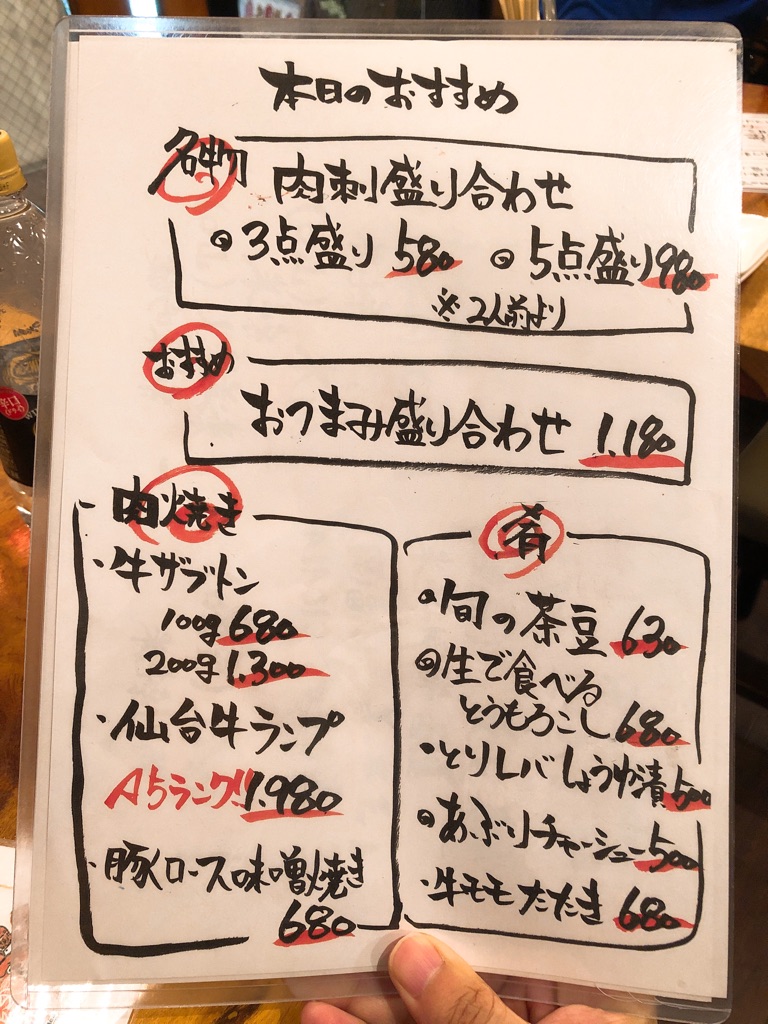 本日のおすすめ
名物
肉刺盛り合わせ
3点盛り 580 5点盛り 980
※2人前より
おすすめ
おつまみ盛り合わせ 1.180
肉焼き
・牛ザブトン
100g 680
200g 1.300
・仙台牛ランプ
A5ランク!! 1.980
・豚ロース味噌焼き
680
肴
旬の茶豆 630
生で食べる
とうもろこし 680
・とりレバしょうゆ漬 500
あぶりチャーシュー 500
・牛モモたたき 680
辛口